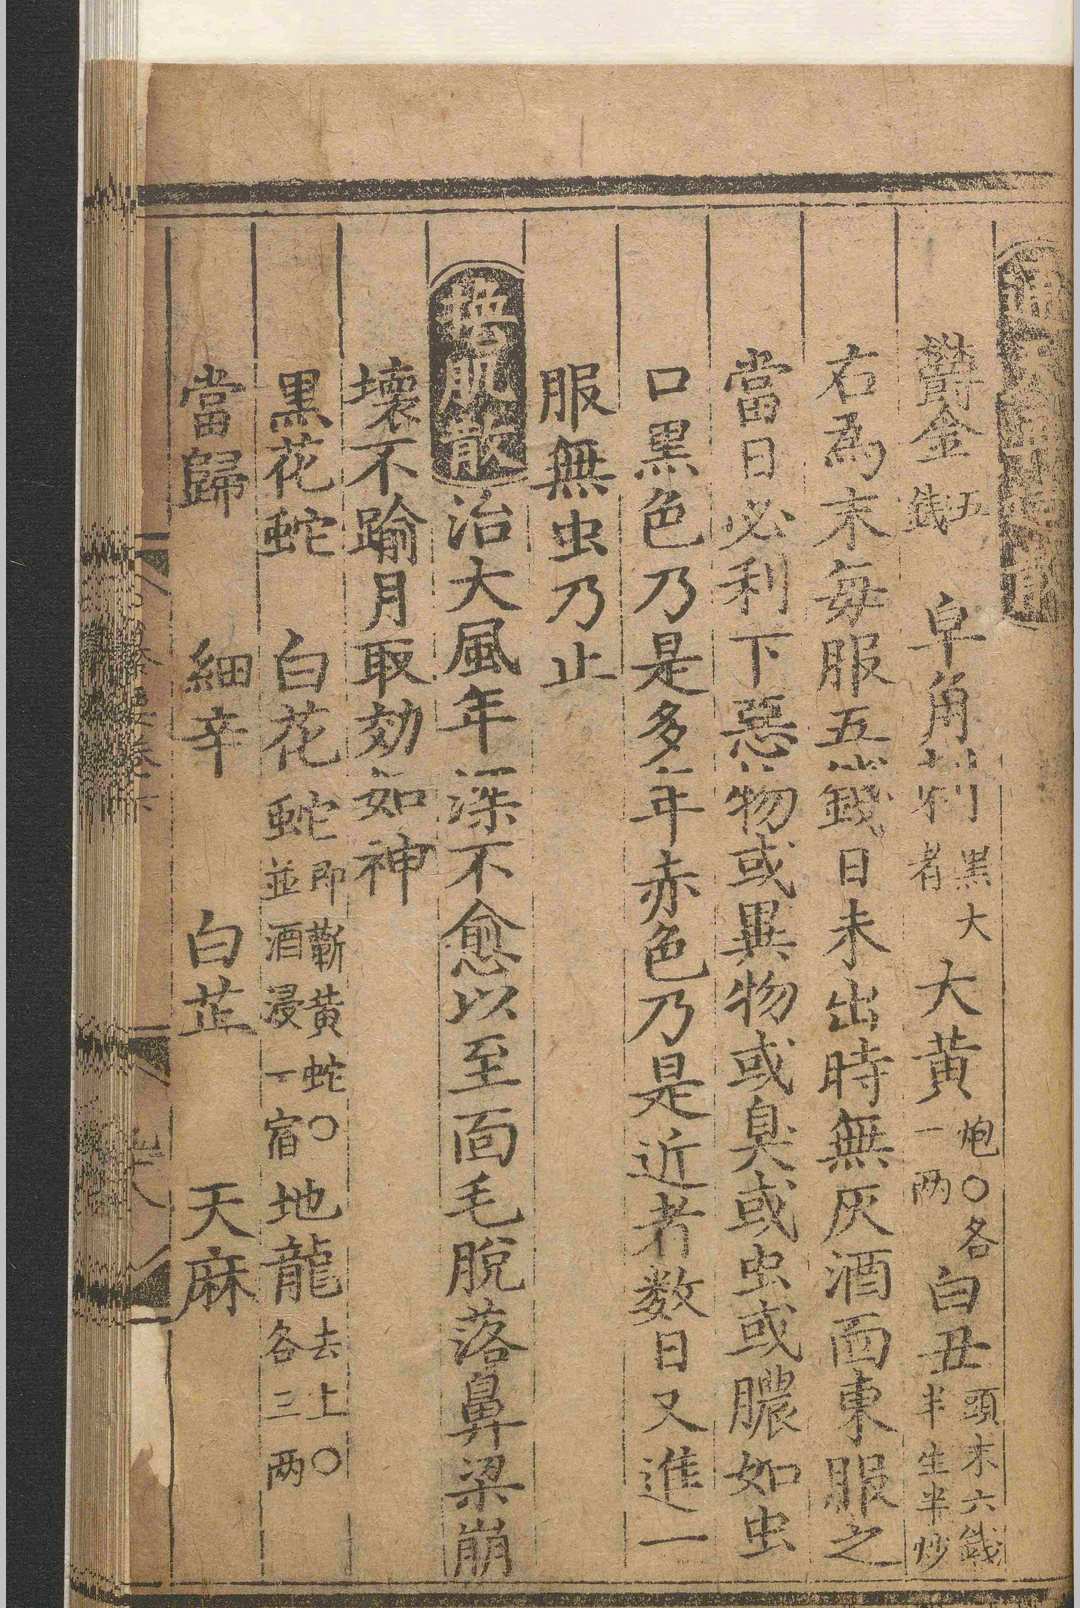 通天再造散
鬱金五錢 皁角刺黑大者 大黃炮○各一两 白丑頭末六錢半生半炒
右為末每服五錢日未出時無灰酒面東服之
當日必利下惡物或異物或臭或虫或膿如虫
口黑色乃是多年赤色乃是近者数日又進一
服無虫乃止
換肌散治大風年深不愈以至面毛脫落鼻梁崩
壞不踰月取効如神
黒花蛇 白花蛇即蘄黃蛇○並酒浸一宿 地龍去土○各三两
當歸 細辛 白芷 天麻